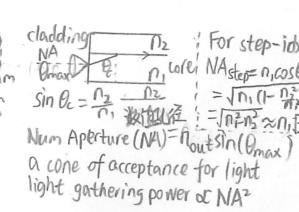 cladding
n₂
NA
θmax
θc
n₁
core
sin θc = n₂/n₁
n₂
数值孔径
Num Aperture (NA) = n_out sin(θmax)
a cone of acceptance for light
light gathering power ∝ NA²
For step-
NA_step = n₁ cos
= √n₁(1 -
= √n₁² n₂² ≈ n₁